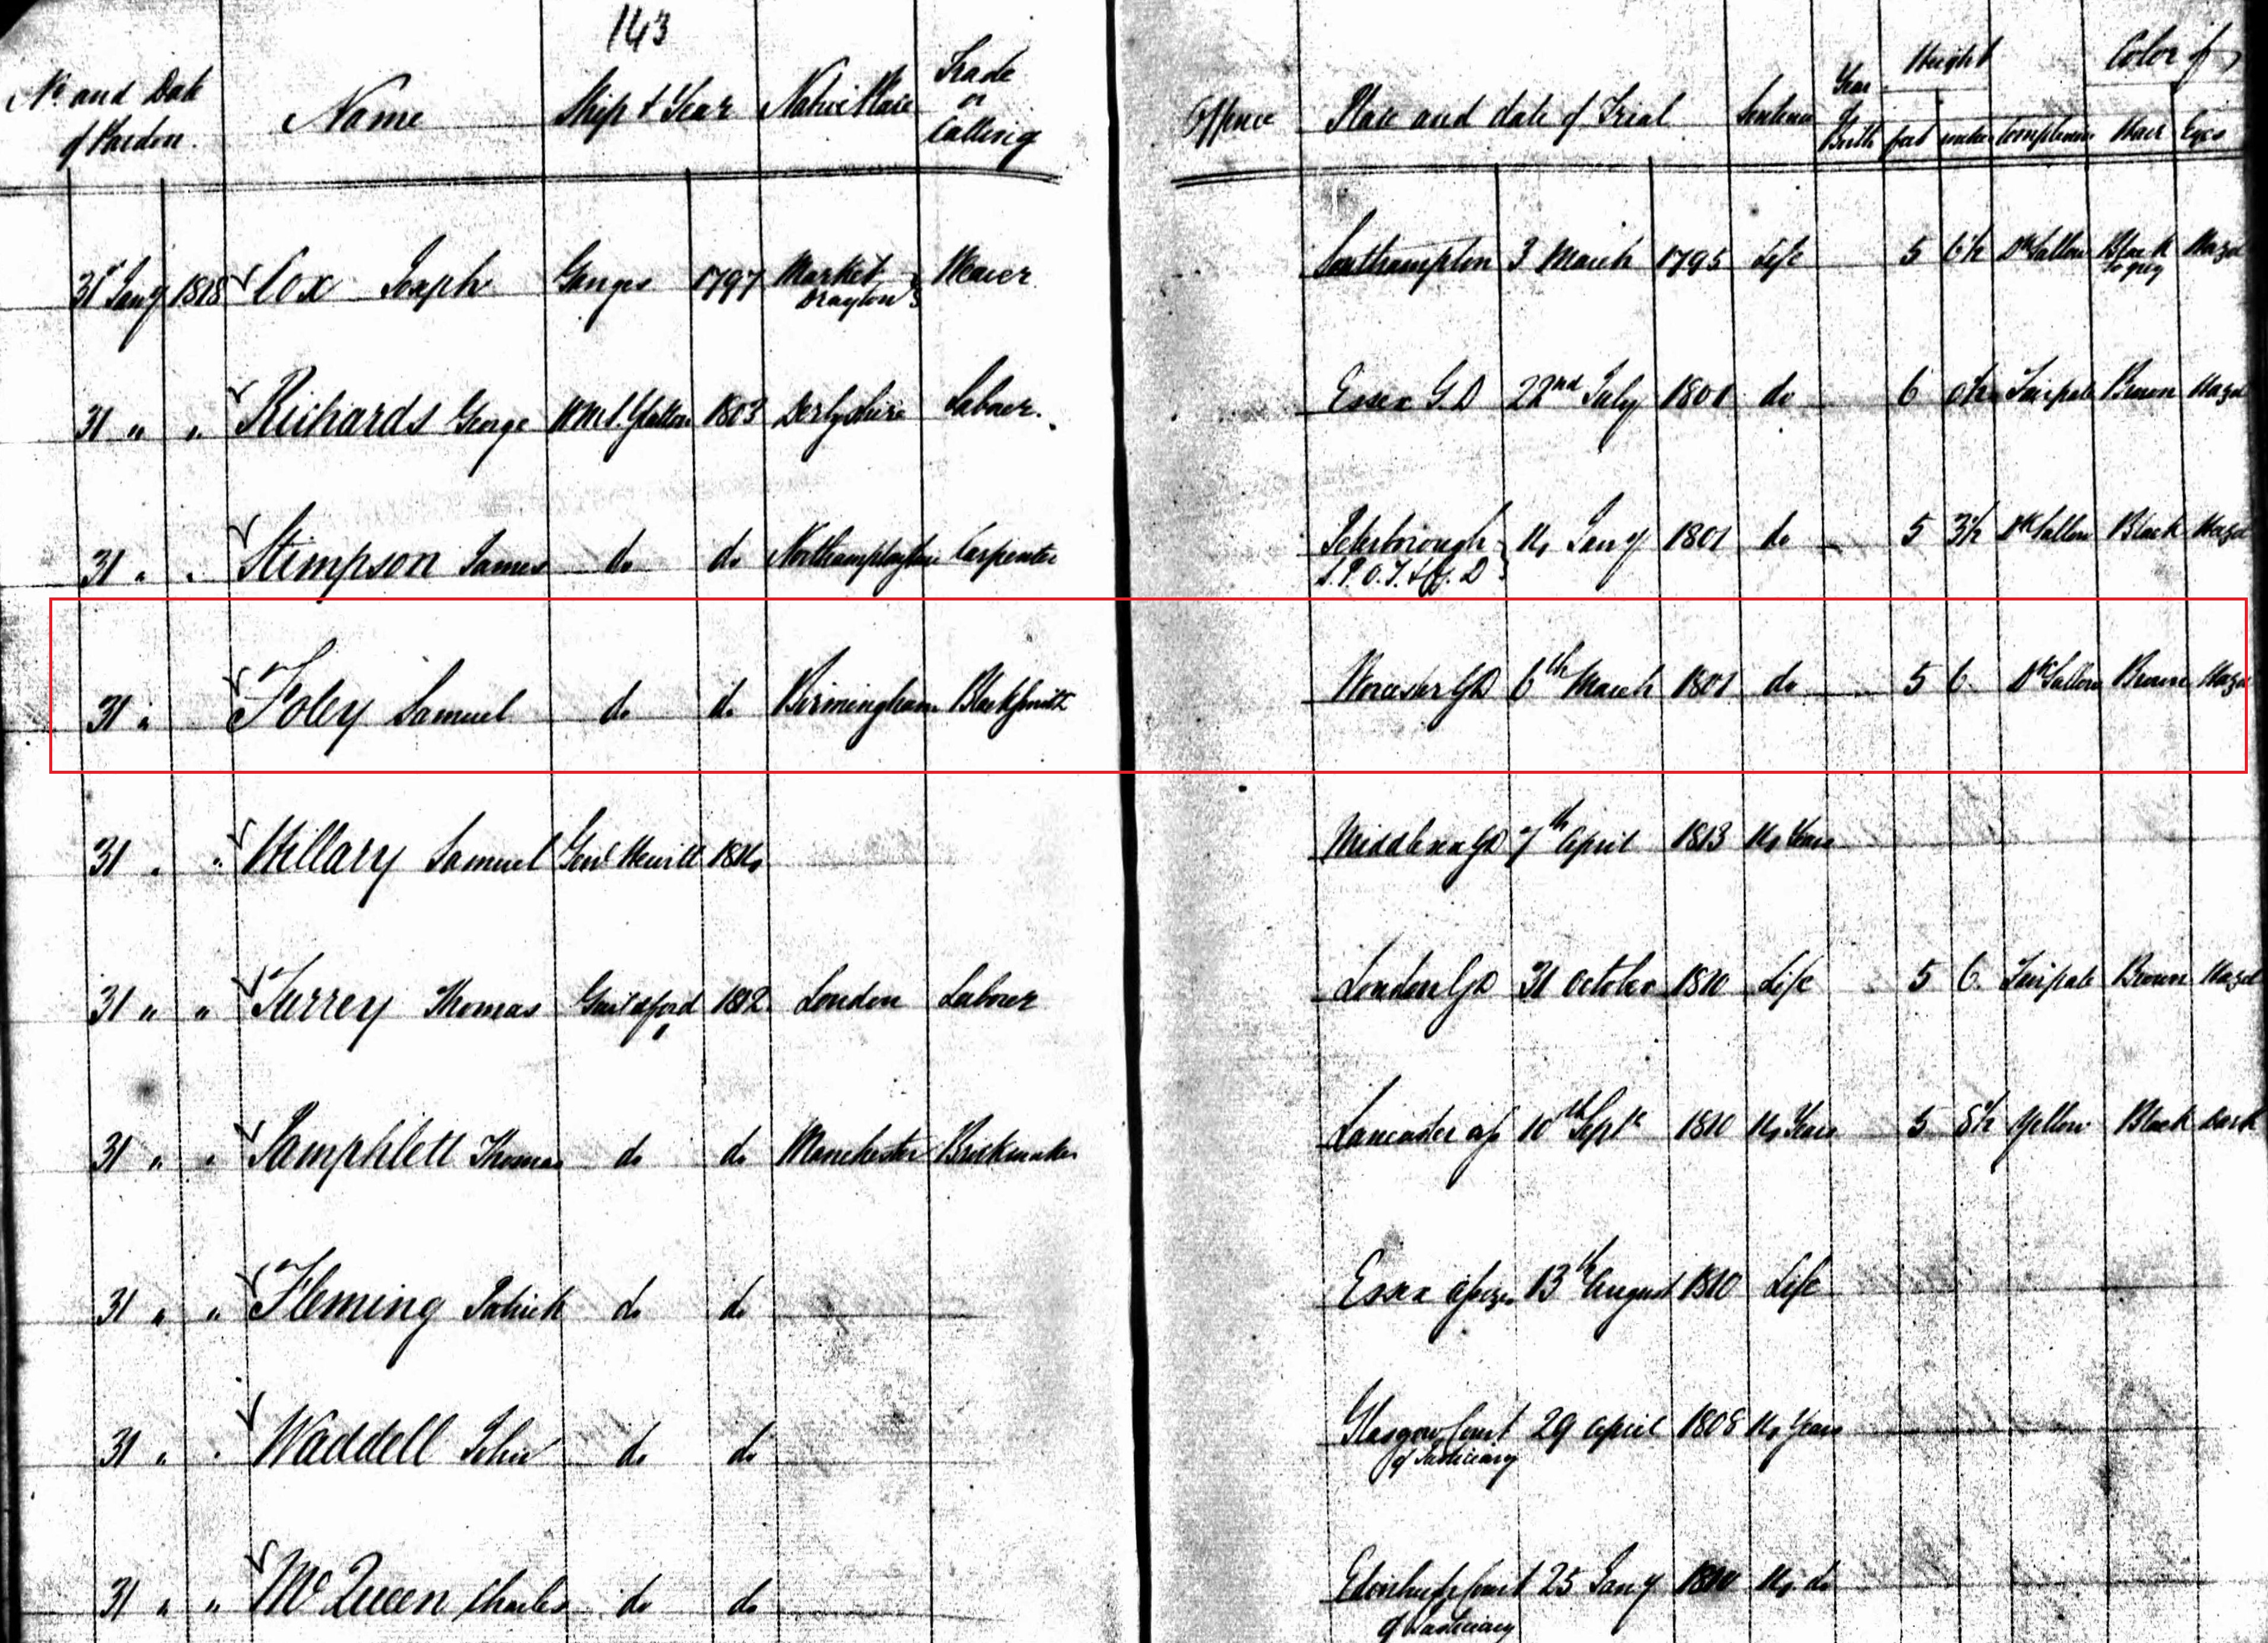 143
No. and Date of Pardon. Name Ship & Year Native Place Trade or Calling Offence Place and date of Trial Sentence Year of Birth Height feet inches Complexion Color of Hair Eyes
31st Jany 1818 Cox Joseph Ganges 1797 Market Drayton Weaver Southampton 3 March 1795 Life 5 6½ Dk Sallow Black to grey Hazel
31 " " Richards George H.M.S. Glatton 1803 Derbyshire Laborer. Essex G.D 22nd July 1801 do 6 0½ Fair pale Brown Hazel
31 " " Stimpson James do do Northamptonshire Carpenter Peterborough 14 Jany 1801 do 5 3½ Dk Sallow Black Hazel
31 " Foley Samuel do do Birmingham Blacksmith Worcester GD 6th March 1801 do 5 6 Dk Sallow Brown Hazel
31 " " Hillary Samuel Genl Hewitt 1814 Middlesex GD 7th April 1813 14 Years
31 " " Turrey Thomas Guildford 1812 London Laborer London GD 31 October 1810 Life 5 6 Fair pale Brown Hazel
31 " " Pamphlett Thomas do do Manchester Brickmaker Lancaster 10th Septr 1810 14 Years 5 8½ Yellow Black Dark
31 " " Fleming Patrick do do Essex Assizes 13th August 1810 Life
31 " " Waddell John do do Glasgow Court of Justiciary 29 April 1808 14 Years
31 " " McQueen Charles do do Edinburgh Court of Justiciary 25 Jany 1810 14 do